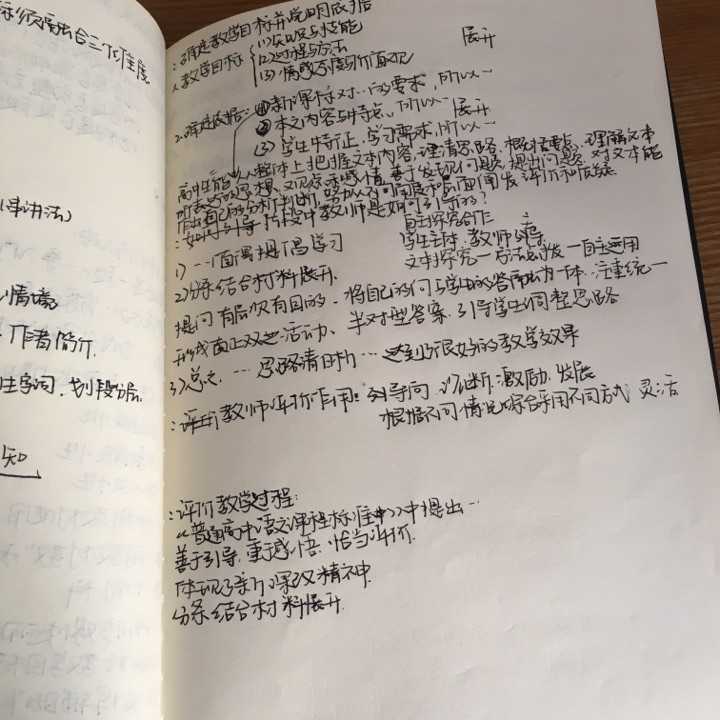 综合三个维度
(串讲法)
情境
作者简介.
生字词.划段分层
知
:确定教学目标并说明依据
1.教学目标
(1)知识与技能
(2)过程与方法
(3)情感态度与价值观
展开
2.确定依据:
①新课标对…的要求,所以…
②本文内容与特点,所以… 展开
(3)学生特征.学习要求,所以…
高中生能从整体上把握文本内容,理清思路,概括要点,理解文本
所表达的思想、观点和感情.善于发现问题、提出问题.对文本能
作出自己的分析判断,努力从不同角度和层面阐发评价和质疑
:如何引导 片段中教师是如何引导的?
自主探究合作
1)…面 提倡学习
学生主体,教师为导
2)分条结合材料展开.
文本探究—方法启发—自主运用
提问有层次有目的.将自己的问与学生的答融为一体.注重统一
形成面上双边活动、半对型答案.引导学生调整思路
3)总之…思路清晰…达到了很好的教学效果
:评我教师评价作用:引导向 诊断.激励.发展
根据不同情况综合采用不同方式 灵活
:评价教学过程:
《普通高中语文课程标准》中提出…
善于引导.重于感悟.恰当评价.
体现了新课改精神.
分条结合材料展开.